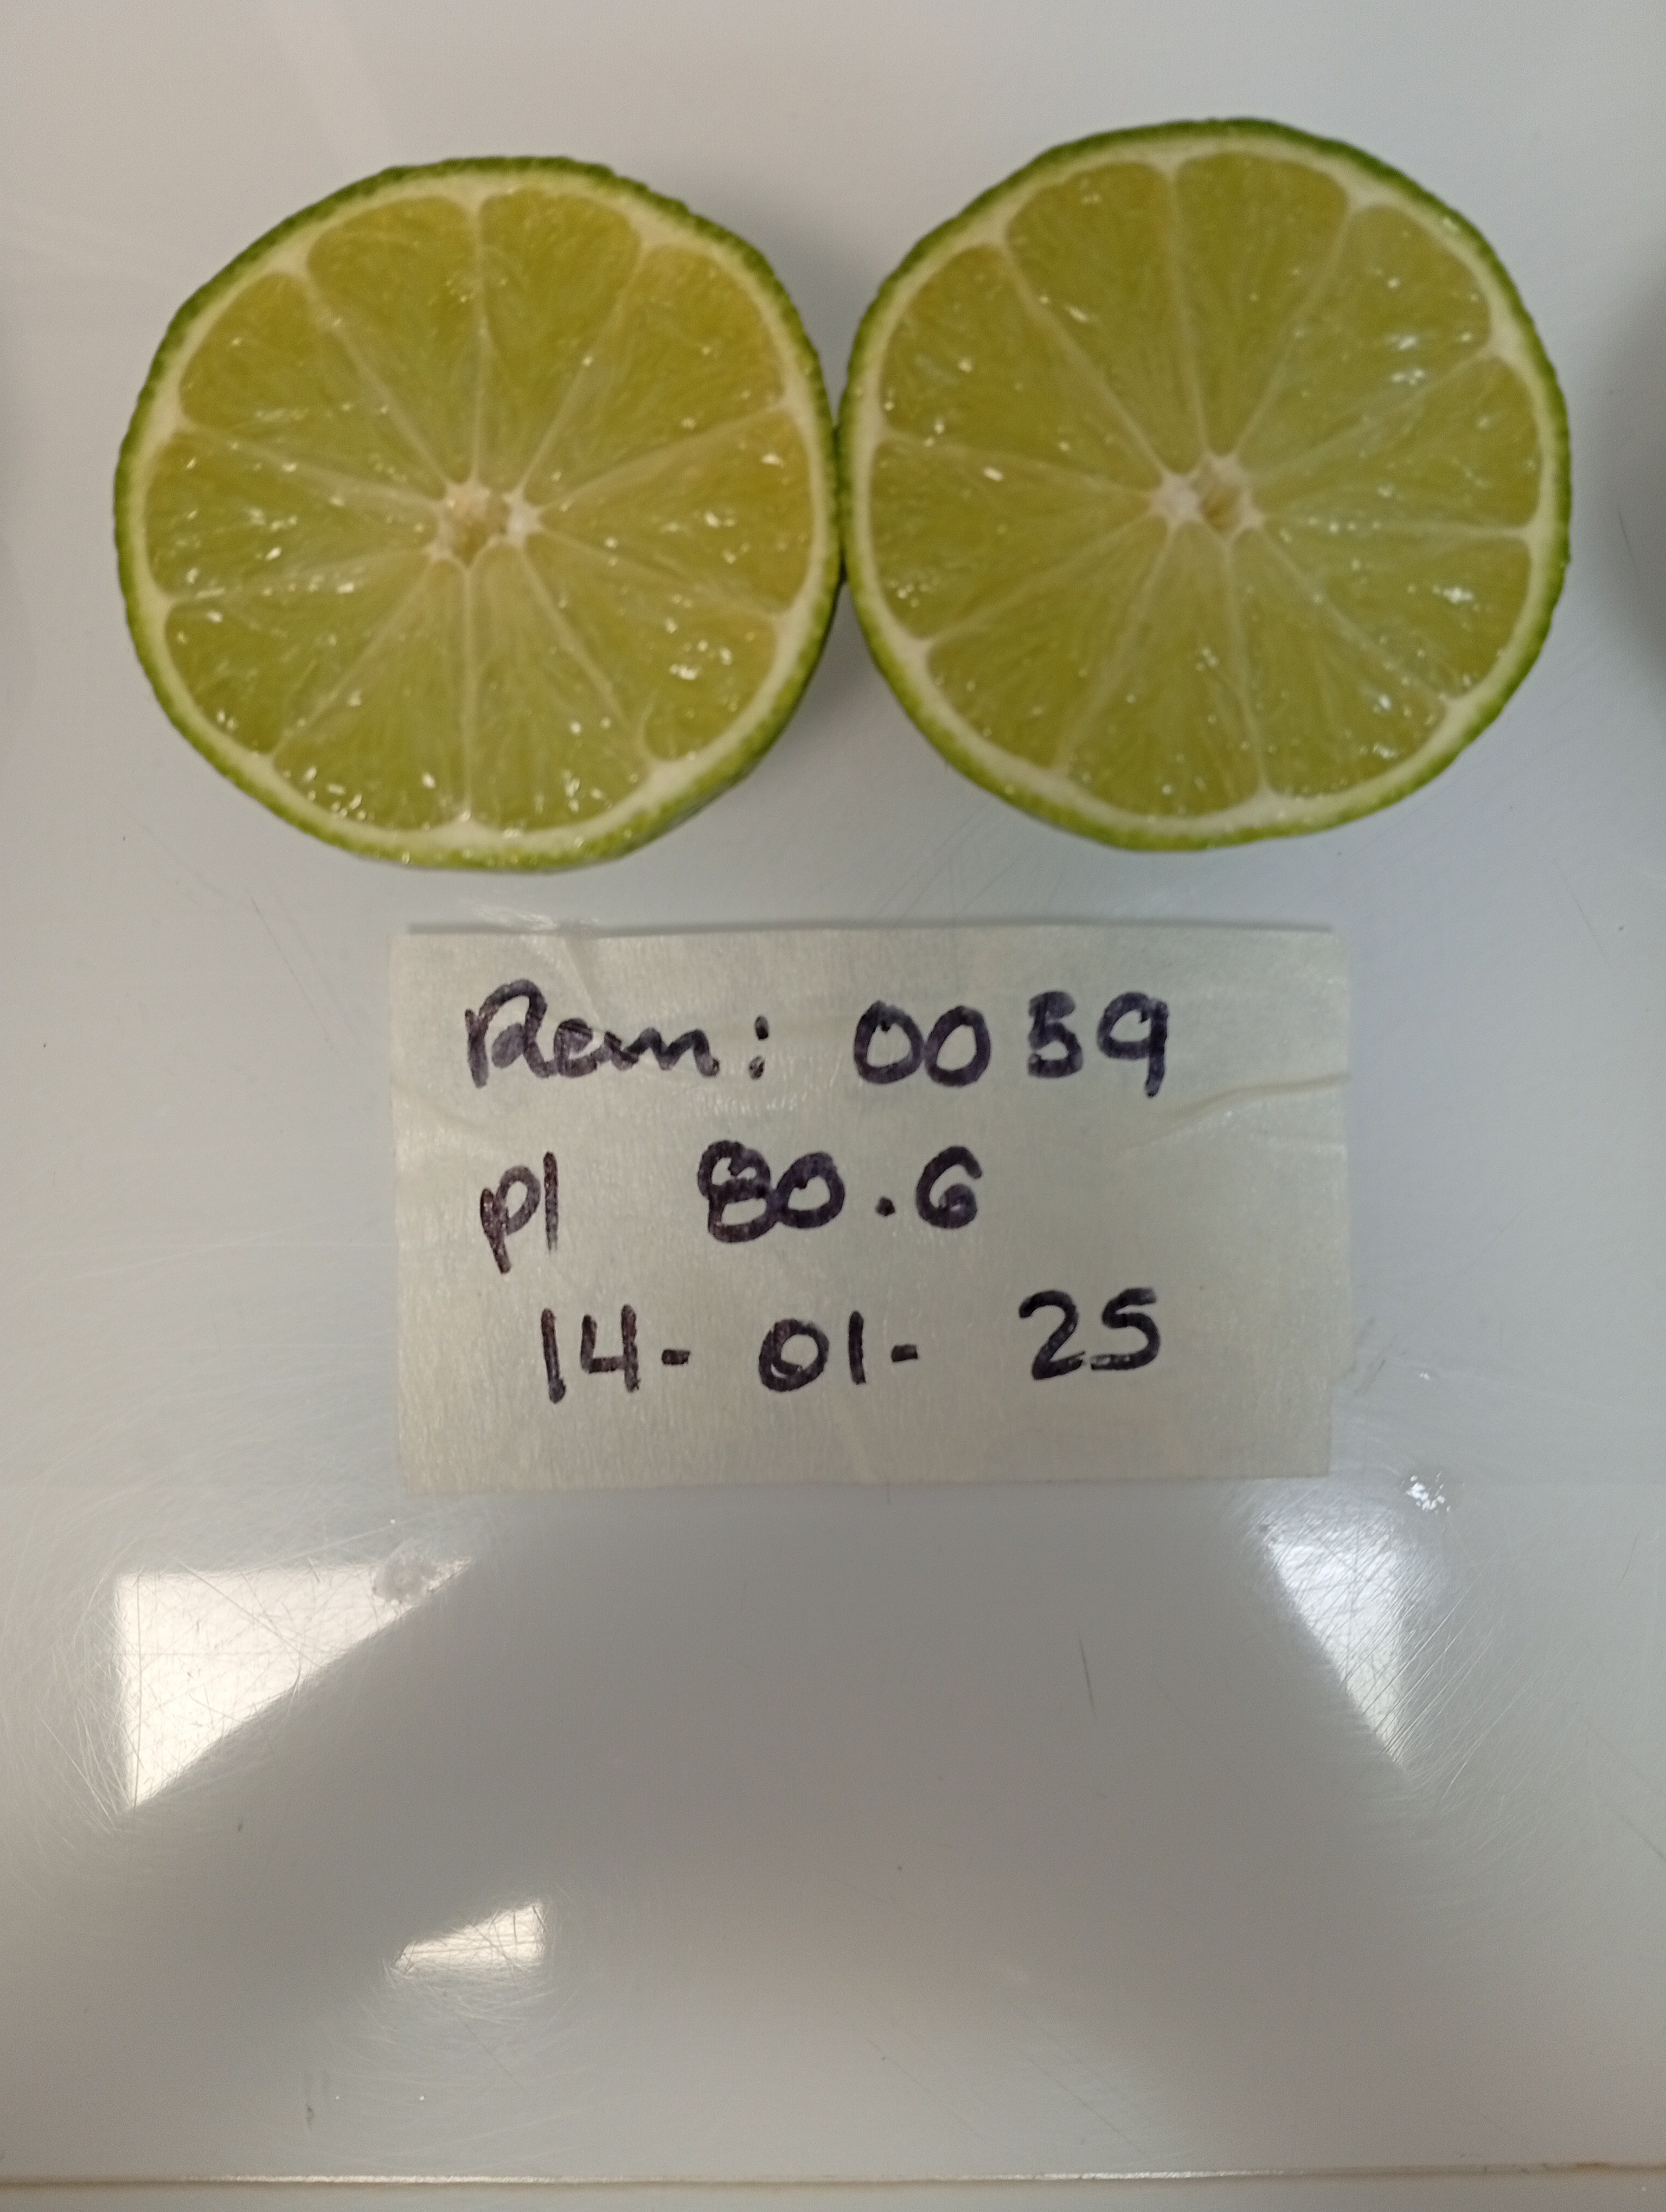 Rem: 0059
pl 80.6
14-01-25